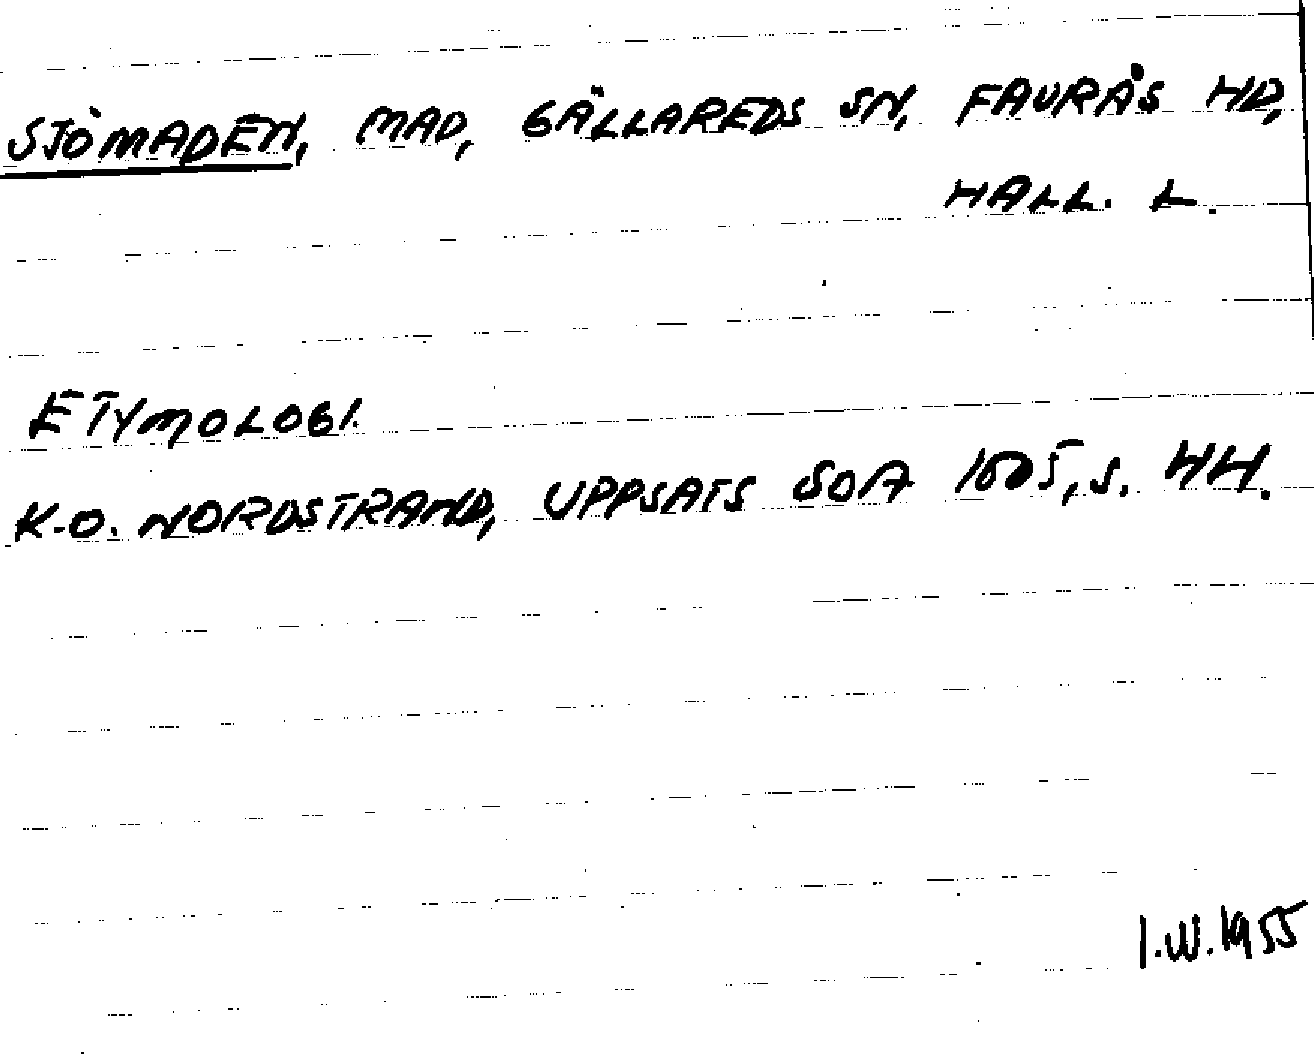 SJÖMADEN, MAD, GÄLLAREDS SN, FAURÅS HD,
HALL. L.
ETYMOLOGI.
K.-O. NORDSTRAND, UPPSATS SOA 1505, S. 44.
I.W. 1955